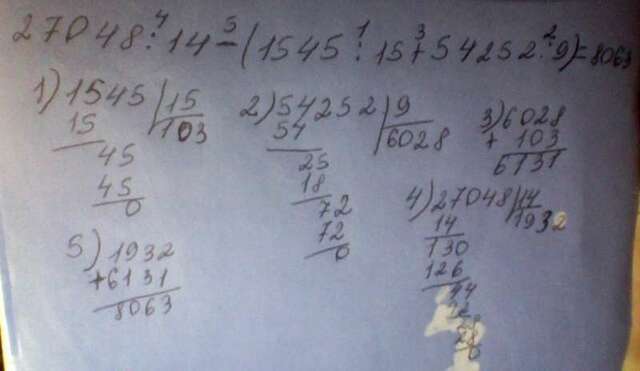 4 5 1 3 2
27048:14-(1545:15+54252:9)=8063
1) 1545 | 15
15 103
45
45
0
2) 54252 | 9
54 6028
25
18
72
72
0
3) 6028
+ 103
6131
4) 27048 | 14
14 1932
130
126
44
42
28
28
0
5) 1932
+6131
8063